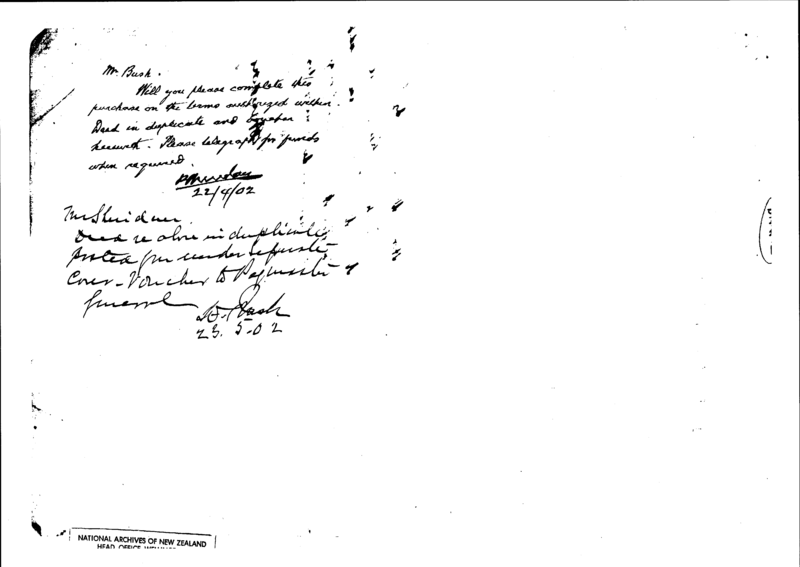 Mr. Bush.
Will you please complete this
purchase on the terms authorized within.
Deed in duplicate and voucher
herewith. Please telegraph for funds
when required.
22/4/02
Mr Sheridan
Deed re above in duplicate
posted you under separate
Cover - Voucher to Paymaster
General
Bush
23.5.02
NATIONAL ARCHIVES OF NEW ZEALAND
HEAD OFFICE